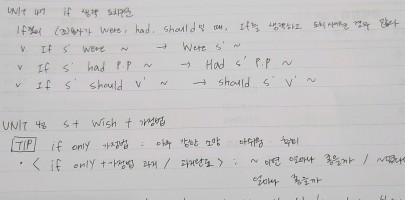 UNIT 47 if 생략 도치구문
If절의 (조)동사가 were, had, should 일 때, If를 생략하고 도치시키는 경우 많다
v If S' were ~ → Were S' ~
v If S' had p.p ~ → Had S' p.p ~
v If S' should V' ~ → should S' V' ~
UNIT 48 S + wish + 가정법
TIP if only 가정법 : 아주 강한 소망 아쉬움
• < if only + 가정법 과거 / 과거완료 > : ~ 이면 얼마나 좋을까 / ~
얼마나 좋을까